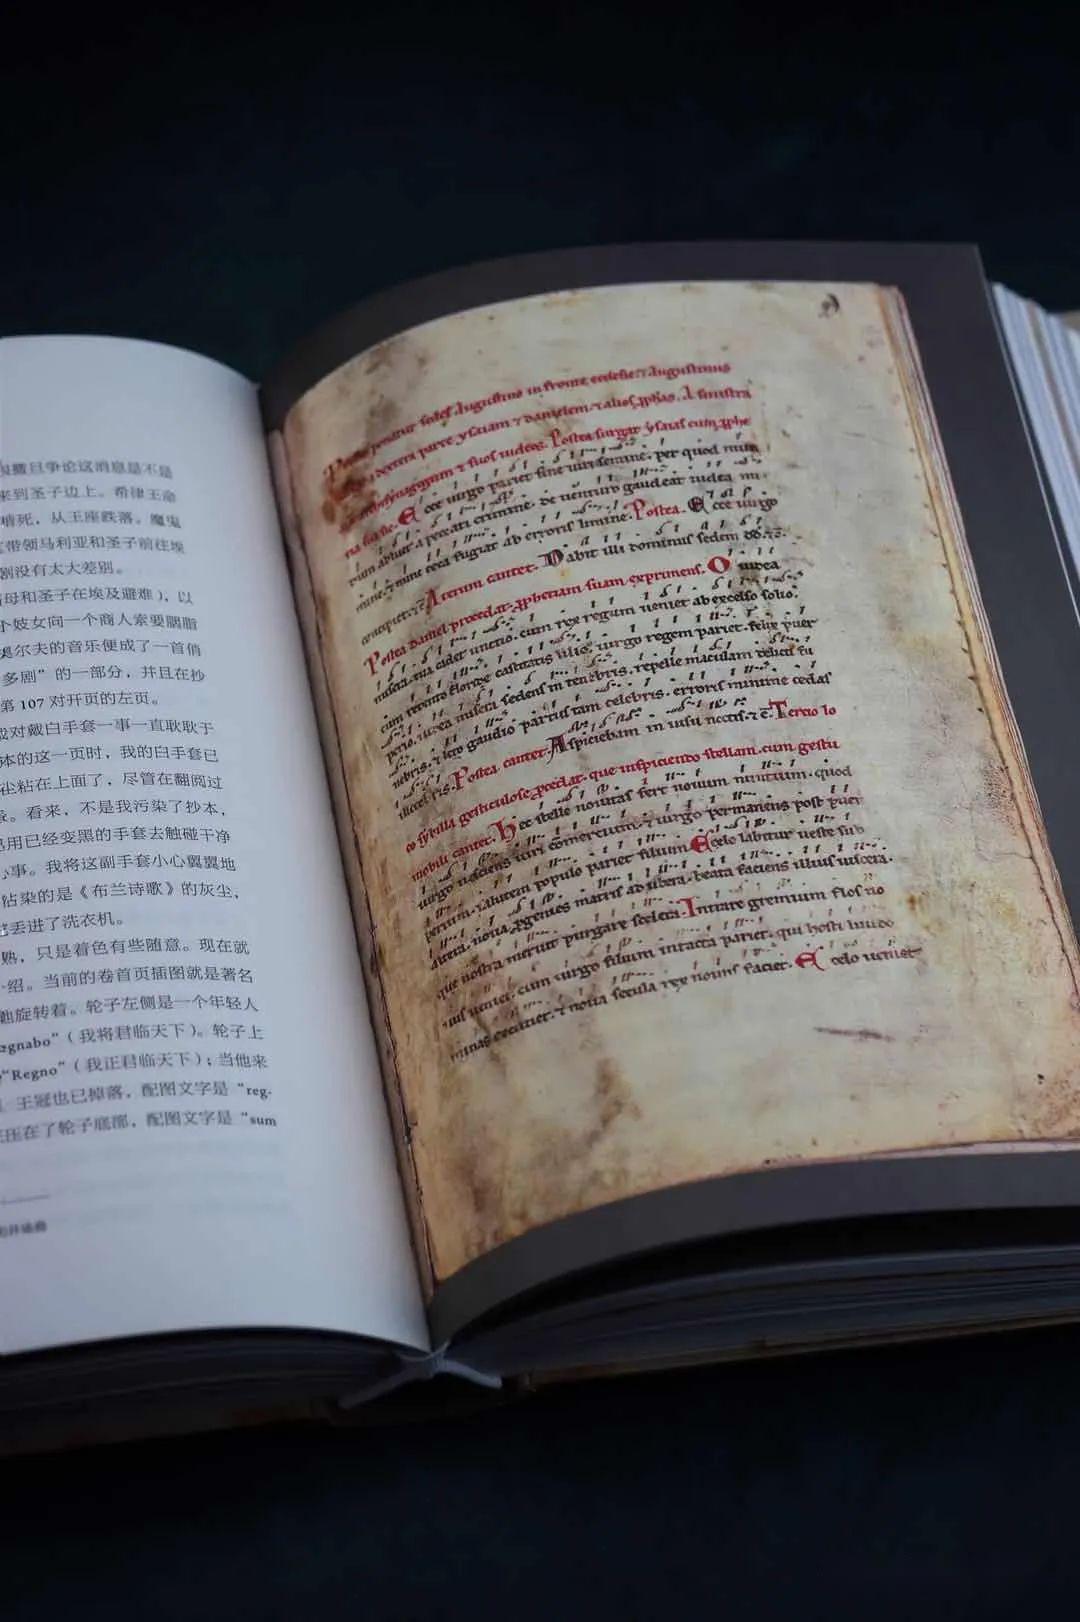 争论这消息是不是
来到圣子边上。希律王命
死，从王座跌落。魔鬼
带领马利亚和圣子前往埃
剧没有太大差别。
母和圣子在埃及避难），以
个妓女向一个商人索要胭脂
奥尔夫的音乐便成了一首俏
多剧”的一部分，并且在抄
第 107 对开页的左页。
对戴白手套一事一直耿耿于
本的这一页时，我的白手套已
尘粘在上面了，尽管在翻阅过
。看来，不是我污染了抄本，
用已经变黑的手套去触碰干净
心事。我将这副手套小心翼翼地
沾染的是《布兰诗歌》的灰尘，
丢进了洗衣机。
熟，只是着色有些随意。现在就
绍。当前的卷首页插图就是著名
旋转着。轮子左侧是一个年轻人
egnabo”（我将君临天下）。轮子上
“Regno”（我正君临天下）；当他来
王冠也已掉落，配图文字是“reg-
压在了轮子底部，配图文字是“sum
ponatur sedes Augustino in fronte ecclesie. Augustinus
dextera parte ysaiam danielem alios A sinistra
suos iudeos. Postea surgat ysaias cum
Ecce virgo pariet sine viri semine. per quod mun
abluet a peccati crimine. de venturo gaudeat iudea
nunc ceca fugiat ab erroris limine. Postea. Ecce virgo
Iterum cantet. Dabit illi dominus sedem
Postea daniel procedat suam exprimens. O iudea
misera tua cadet unctio. cum rex regum veniet ab excelso solio.
cum retento floride castitatis lilio. virgo regem pariet. felix puer
iudea misera sedens in tenebris. repelle maculam delicti
leto gaudio partus tam celebris. erroris minime cedas
Postea cantet. Aspiciebam in visu noctis. Tercio lo
co sybilla gesticulose procedat. que inspiciendo stellam. cum gestu
mobili cantet. Hec stelle novitas fert novum nuntium. quod
virgo nesciens viri comercium. virgo permanens post
salutem populo pariet filium. E celo labitur veste sub
nova. matris ad ubera. beata faciens illius viscera.
que nostra meruit purgare scelera. Intrare gremium flos
veniet. cum virgo filium intacta pariet. qui hosti livido
minas excutiet. nova secula rex novus faciet. E celo veniet